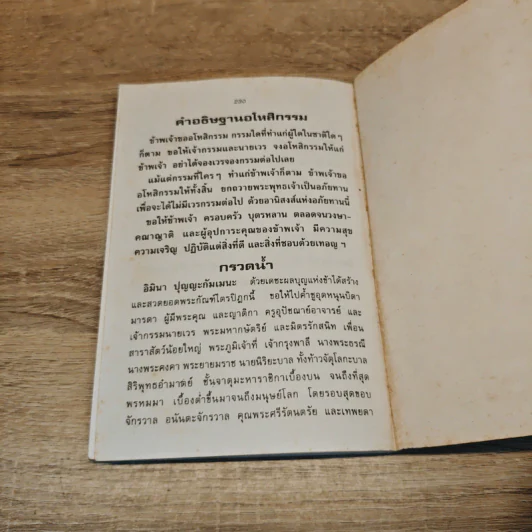 230
คำอธิษฐานอโหสิกรรม
ข้าพเจ้าขออโหสิกรรม กรรมใดที่ทำแก่ผู้ใดในชาติใด ๆ
ก็ตาม ขอให้เจ้ากรรมและนายเวร จงอโหสิกรรมให้แก่
ข้าพเจ้า อย่าได้จองเวรจองกรรมต่อไปเลย
แม้แต่กรรมที่ใคร ๆ ทำแก่ข้าพเจ้าก็ตาม ข้าพเจ้าขอ
อโหสิกรรมให้ทั้งสิ้น ยกถวายพระพุทธเจ้าเป็นอภัยทาน
เพื่อจะได้ไม่มีเวรกรรมต่อไป ด้วยอานิสงส์แห่งอภัยทานนี้
ขอให้ข้าพเจ้า ครอบครัว บุตรหลาน ตลอดจนวงษา-
คณาญาติ และผู้อุปการะคุณของข้าพเจ้า มีความสุข
ความเจริญ ปฏิบัติแต่สิ่งที่ดี และสิ่งที่ชอบด้วยเทอญ ฯ
กรวดน้ำ
อิมินา ปุญญะกัมเมนะ ด้วยเดชะผลบุญแห่งข้าได้สร้าง
และสวดยอดพระกัณฑ์ไตรปิฎกนี้ ขอให้ไปค้ำชูอุดหนุนบิดา
มารดา ผู้มีพระคุณ และญาติกา ครูอุปัชฌาย์อาจารย์ และ
เจ้ากรรมนายเวร พระมหากษัตริย์ และมิตรรักสนิท เพื่อน
สาราสัตว์น้อยใหญ่ พระภูมิเจ้าที่ เจ้ากรุงพาลี นางพระธรณี
นางพระคงคา พระยายมราช นายนิริยะบาล ทั้งท้าวจัตุโลกะบาล
สิริพุทธอำมาตย์ ชั้นจาตุมะหาราชิกาเบื้องบน จนถึงที่สุด
พรหมมา เบื้องต่ำขึ้นมาจนถึงมนุษย์โลก โดยรอบสุดขอบ
จักรวาล อนันตะจักรวาล คุณพระศรีรัตนตรัย และเทพยดา